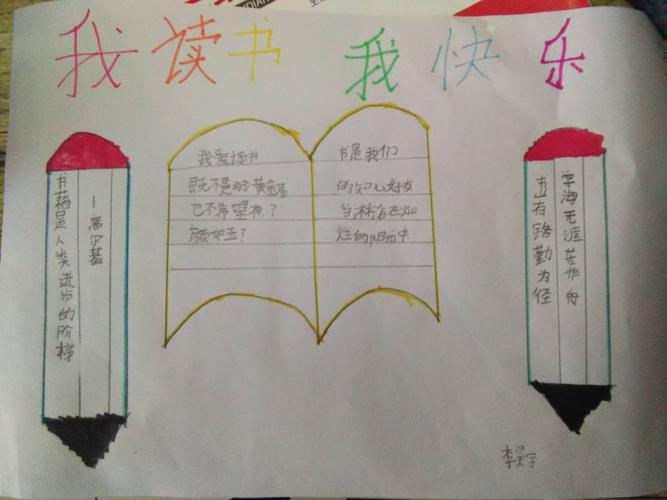 我读书 我快乐
书籍是人类进步的阶梯
—高尔基
我爱读书
既不是为了黄金屋
也不希望有？
颜如玉？
书是我们
的知心好友
烂的阳光中
学海无涯苦作舟
书山有路勤为径